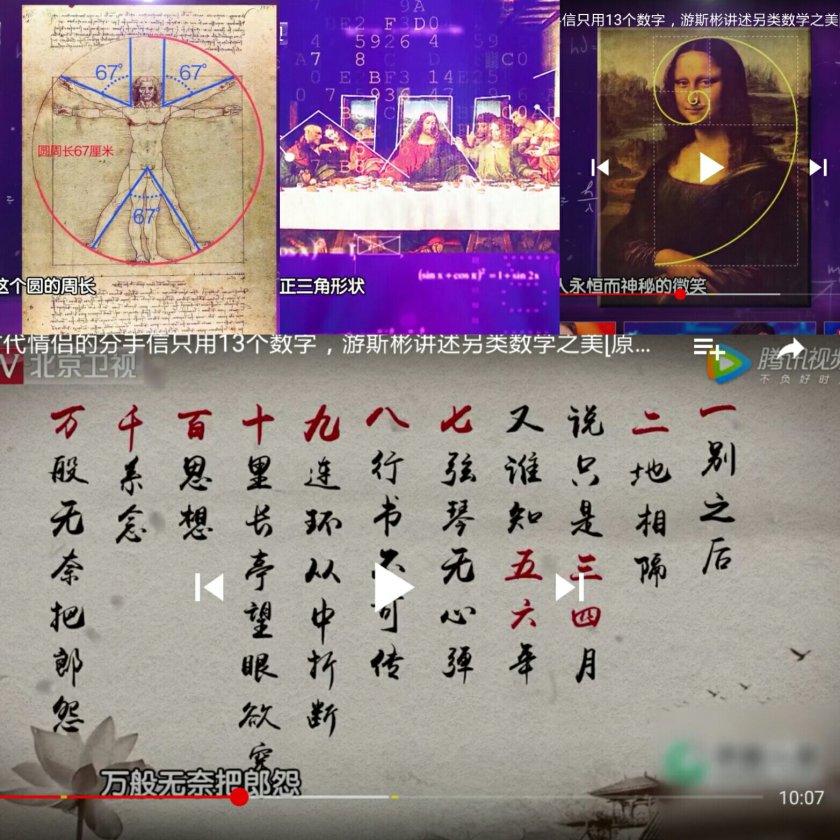 67°
67°
圆周长67厘米
67°
这个圆的周长
正三角形状
(sin x + cos x)² = 1 + sin 2x
信只用13个数字，游斯彬讲述另类数学之美
人永恒而神秘的微笑
代情侣的分手信只用13个数字，游斯彬讲述另类数学之美[原...
北京卫视
腾讯视频
不负好时
一别之后
二地相隔
说只是三四月
又谁知五六年
七弦琴无心弹
八行书不可传
九连环从中折断
十里长亭望眼欲穿
百思想
千系念
万般无奈把郎怨
万般无奈把郎怨
10:07